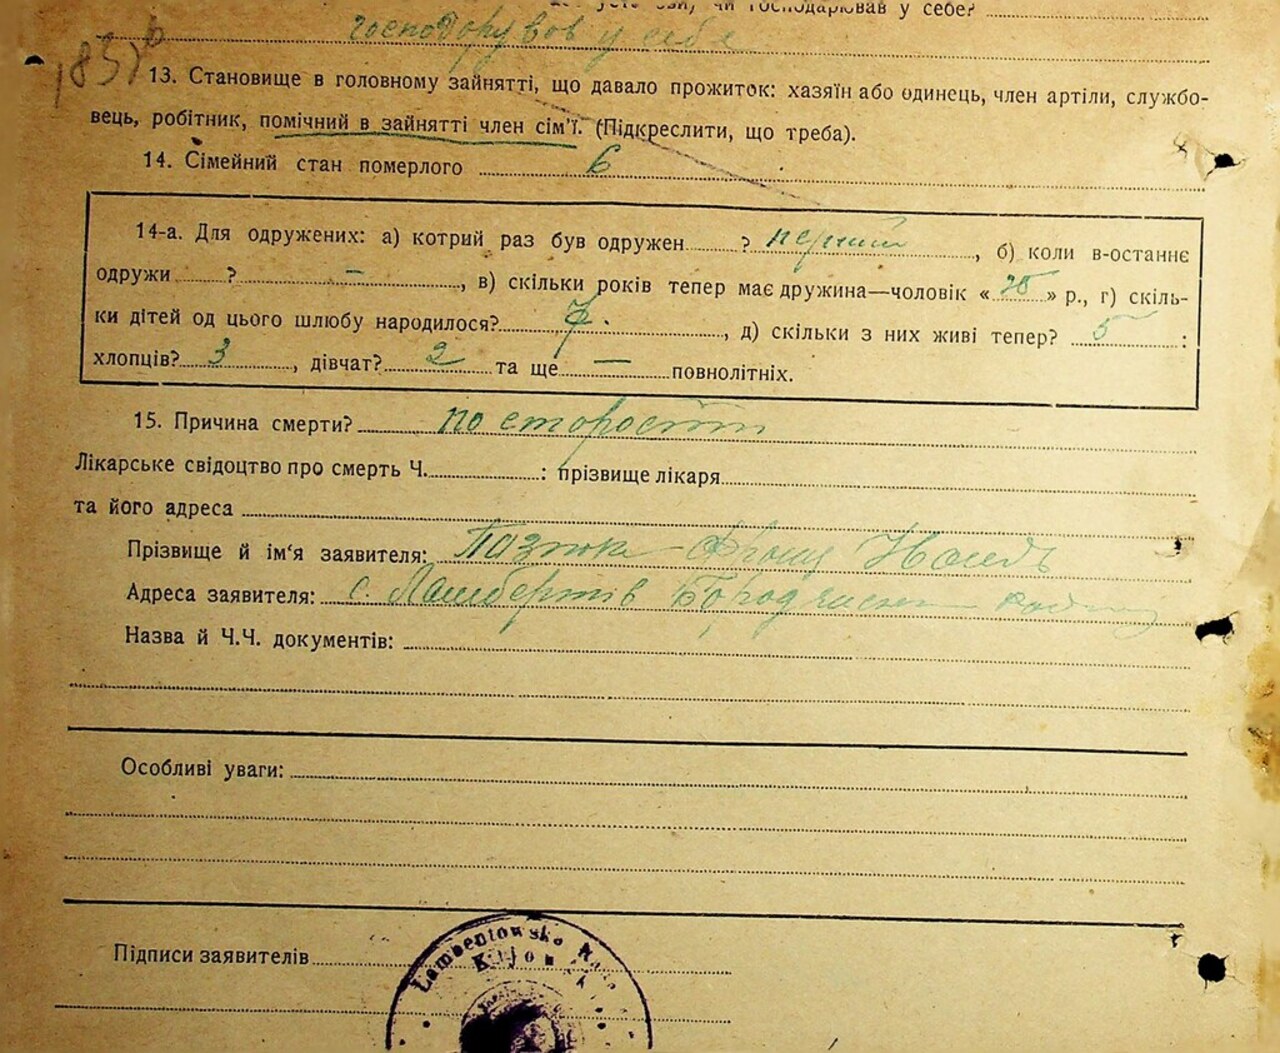 усте ви, чи господарював у себе?
господорував у себе
13. Становище в головному зайнятті, що давало прожиток: хазяїн або одинець, член артіли, службо-
вець, робітник, помічний в зайнятті член сім'ї. (Підкреслити, що треба).
14. Сімейний стан померлого 6
14-а. Для одружених: а) котрий раз був одружен ? перший, б) коли в-останнє
одружи ? —, в) скільки років тепер має дружина—чоловік « » р., г) скіль-
ки дітей од цього шлюбу народилося? 7., д) скільки з них живі тепер? 5 :
хлопців? 3, дівчат? 2 та ще — повнолітніх.
15. Причина смерти? по старости
Лікарське свідоцтво про смерть Ч. : прізвище лікаря
та його адреса
Прізвище й ім'я заявителя:
Адреса заявителя: с.
Назва й Ч.Ч. документів:
Особливі уваги:
Підписи заявителів